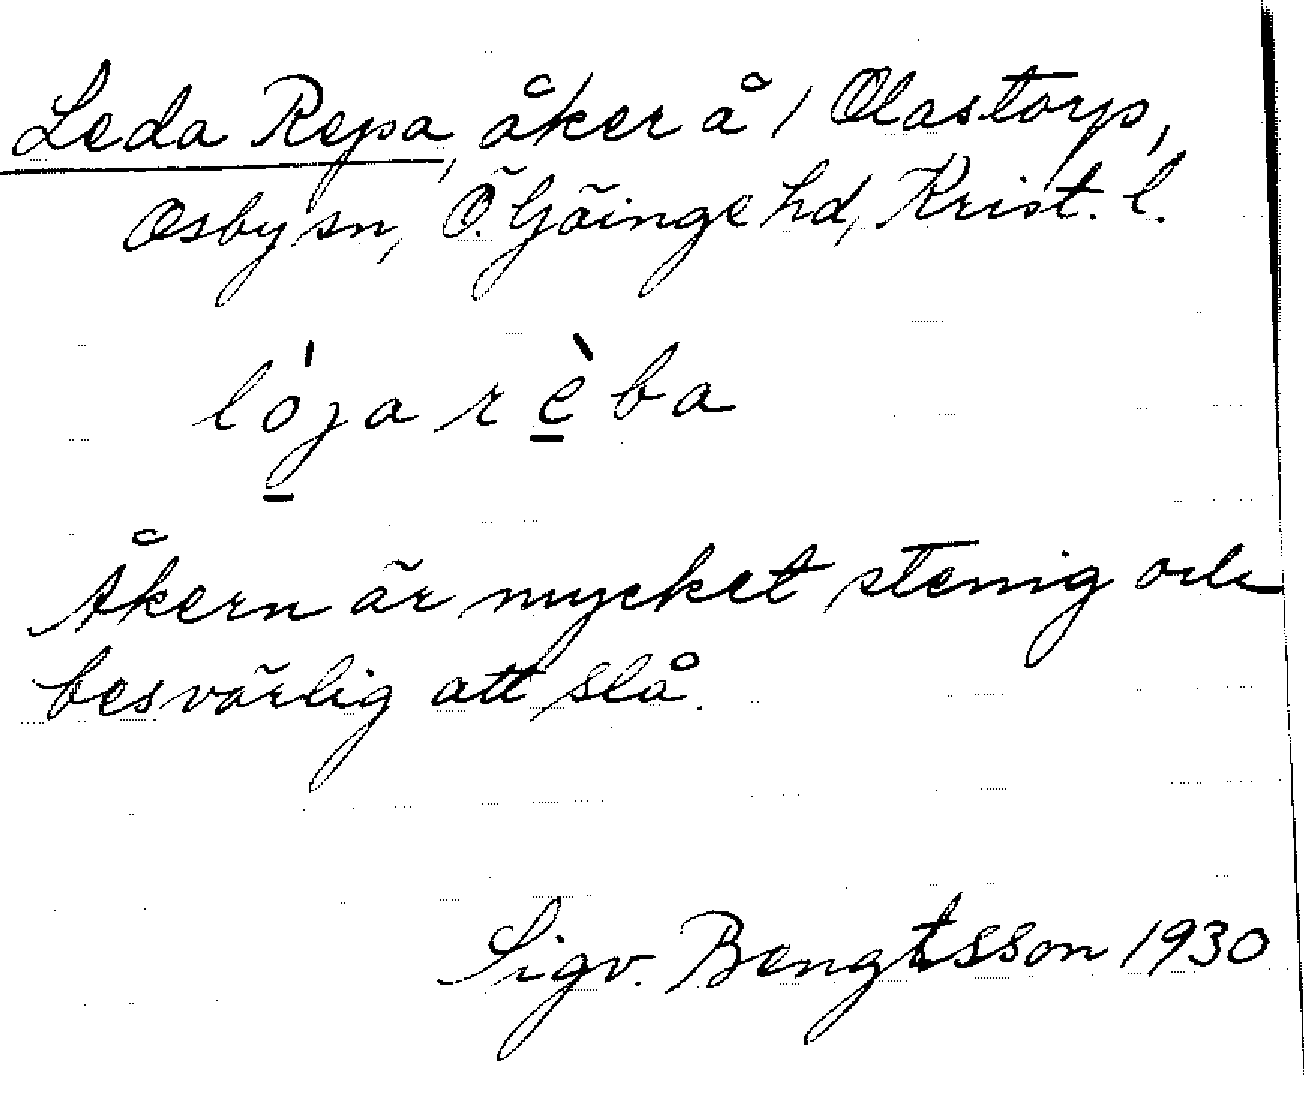 Leda Repa, åker å 1 Olastorp,
Osby sn, Ö. Göinge hd, Krist. l.
lója rèba
Åkern är mycket stenig och
besvärlig att slå.
Sigv. Bengtsson 1930